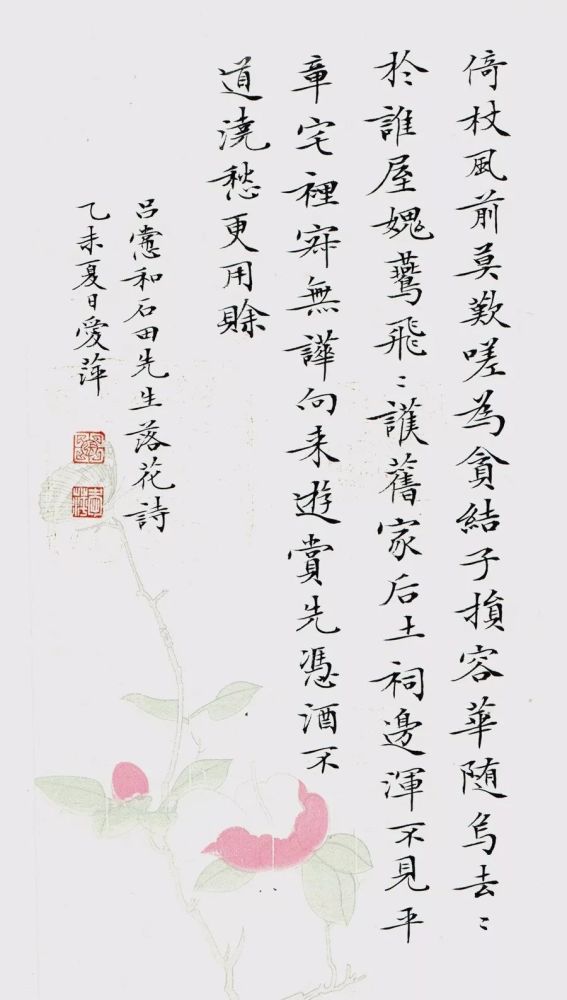 倚杖風前莫歎嗟為貪結子損容華随烏去〻
於誰屋媿鷰飛〻護舊家后土祠邊渾不見平
章宅裡寂無譁向来遊賞先憑酒不
道澆愁更用賖
呂㦂和石田先生落花詩
乙未夏日愛萍